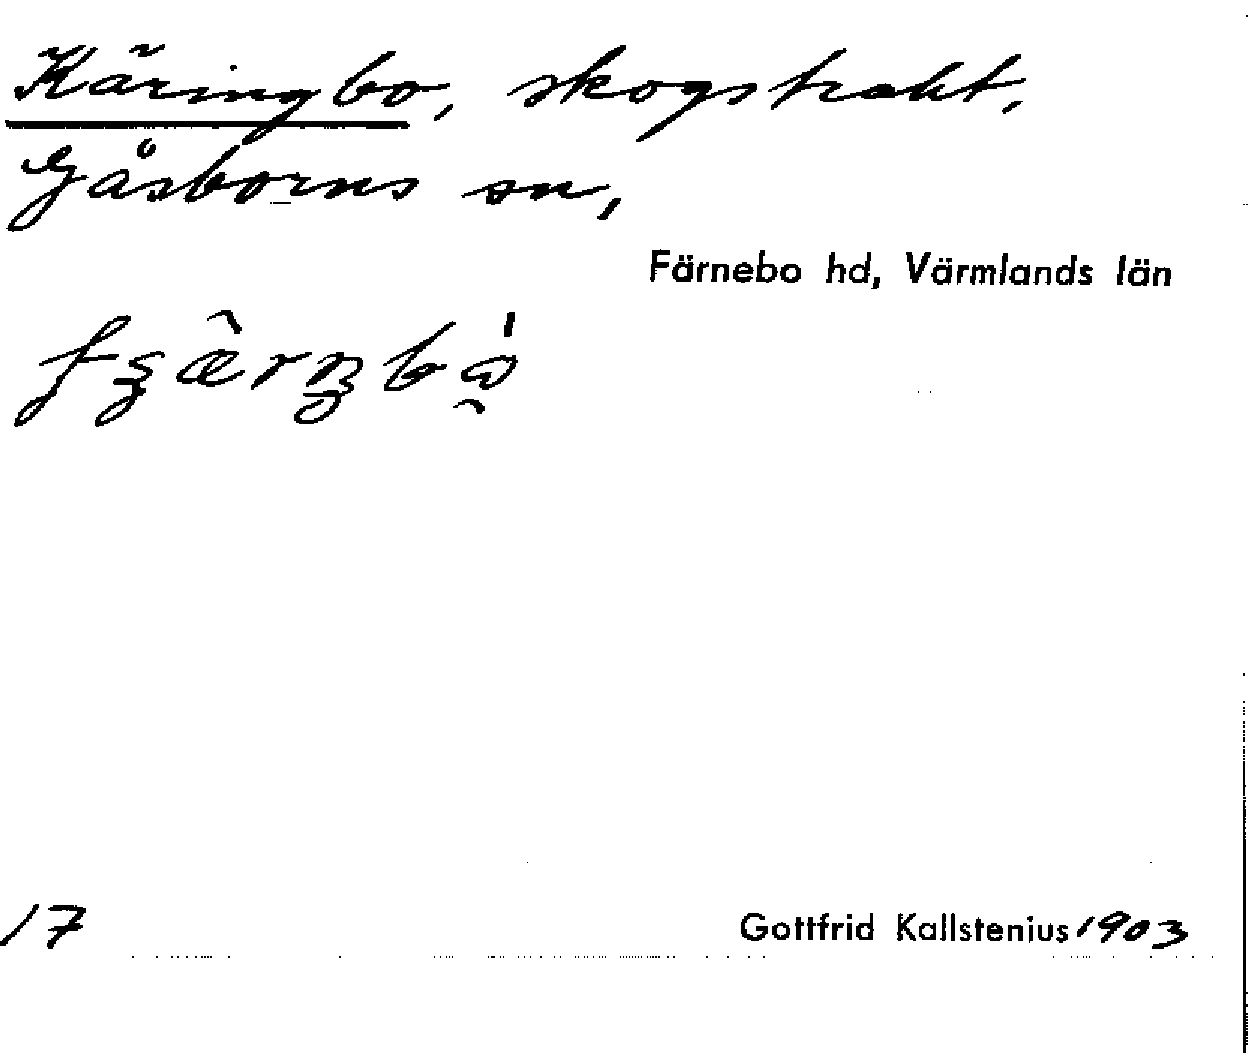 Käringbo, skogstrakt,
Gåsborns sn,
Färnebo hd, Värmlands län
17
Gottfrid Kallstenius 1903